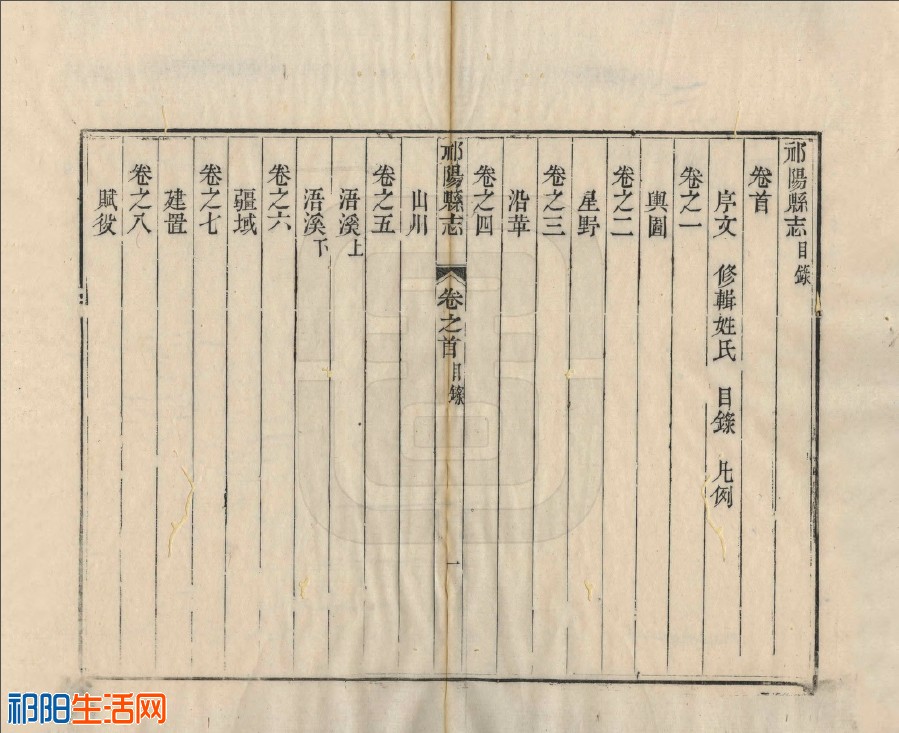 祁陽縣志目錄
卷首
序文 修輯姓氏 目錄 凡例
卷之一
輿圖
卷之二
星野
卷之三
沿革
卷之四
祁陽縣志 卷之首 目錄 一
山川
卷之五
浯溪上
浯溪下
卷之六
疆域
卷之七
建置
卷之八
賦役
祁阳生活网